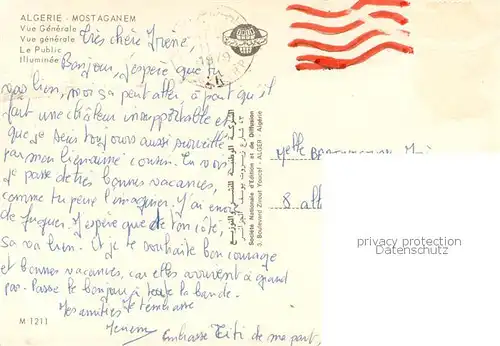 ALGERIE - MOSTAGANEM
Vue Générale
Vue générale
Le Public
Illuminée
Très chère Irène,
Bonjour, j'espère que tu
vas bien, moi sa peut aller, à part qu'il
fait une châleur insupportable et
que je suis toujours aussi surveillé
par mon cousin. Tu vois
je passe de très bonnes vacances,
comme tu peux l'imaginer. J'ai envie
de fuguer. J'espère que de ton côté,
sa va bien. Et je te souhaite bon courage
et bonnes vacances, car elles arrivent à grand
pas. Passe le bonjour à toute la bande.
Mes amitiés Je t'embrasse
Embrasse Titi de ma part,
M 1211
1979
الشركة الوطنية للنشر والتوزيع
Société Nationale d'Edition et de Diffusion
3, Boulevard Zirout Youcef - ALGER - Algérie
Melle
8 all
privacy protection
Datenschutz